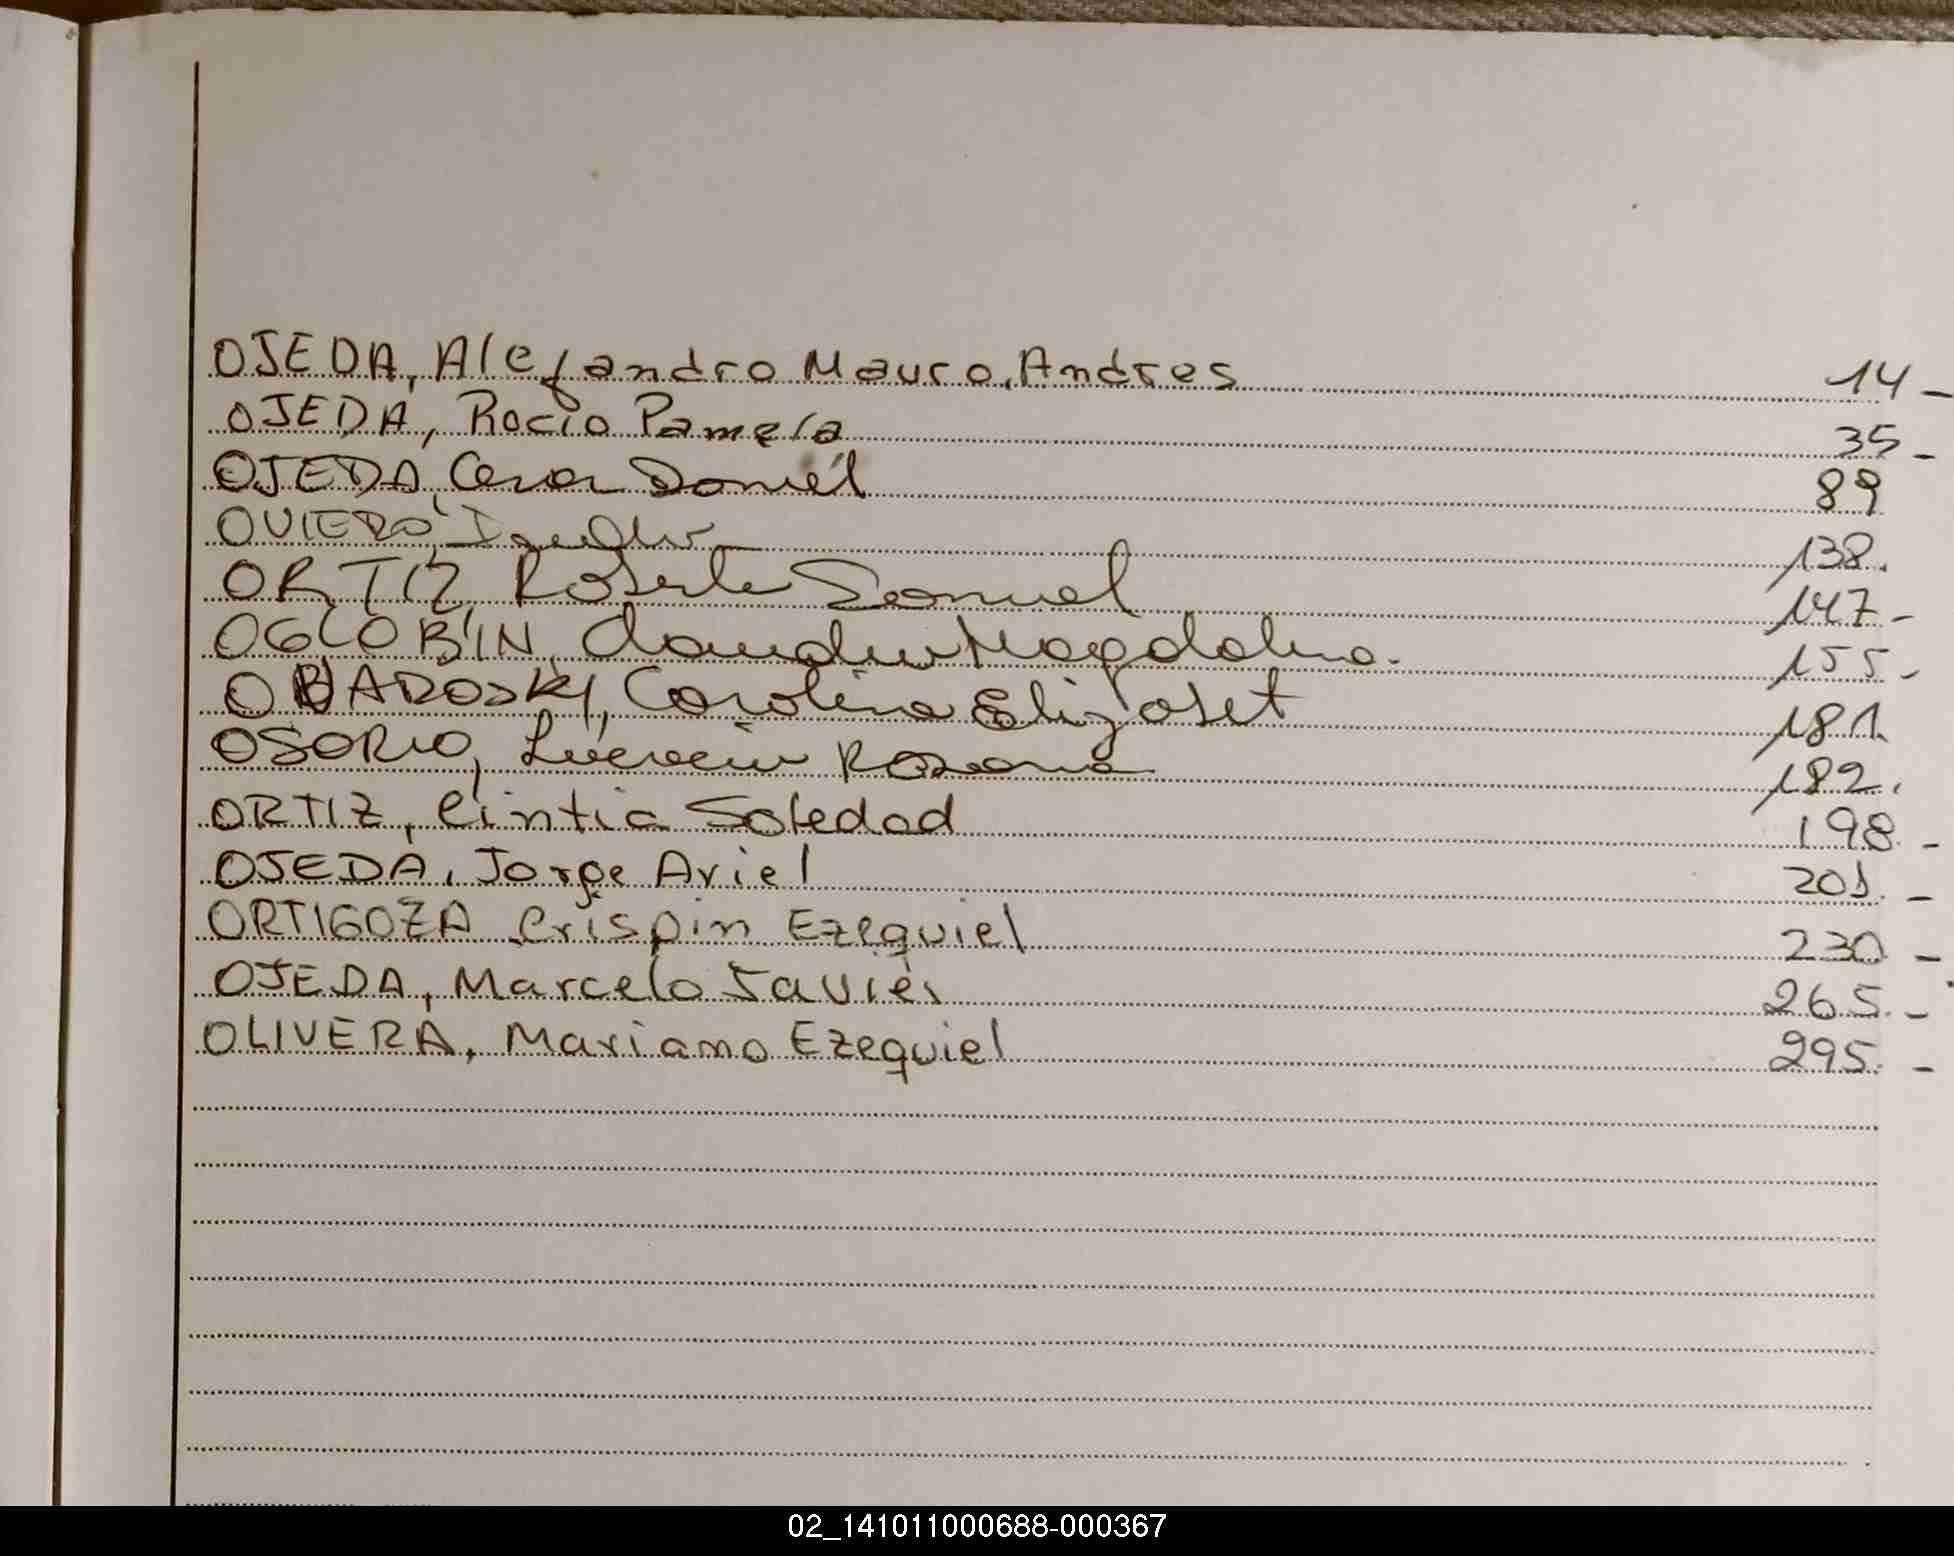 OJEDA, Alejandro Mauro, Andres 14 -
OJEDA, Rocio Pamela 35 -
OJEDA, Cesar Daniel 89
OVIERO, 138.
ORTIZ, Roberto Samuel 147 -
OGLOBIN, Claudia Magdalena. 155 -
Carolina Elizabet 181.
OSORIO, Lucrecia Roxana 182.
ORTIZ, Cintia Soledad 198 -
OJEDA, Jorge Ariel 201. -
ORTIGOZA Crispin Ezequiel 230 -
OJEDA, Marcelo Javier 265. -
OLIVERA, Mariano Ezequiel 295. -
02_141011000688-000367